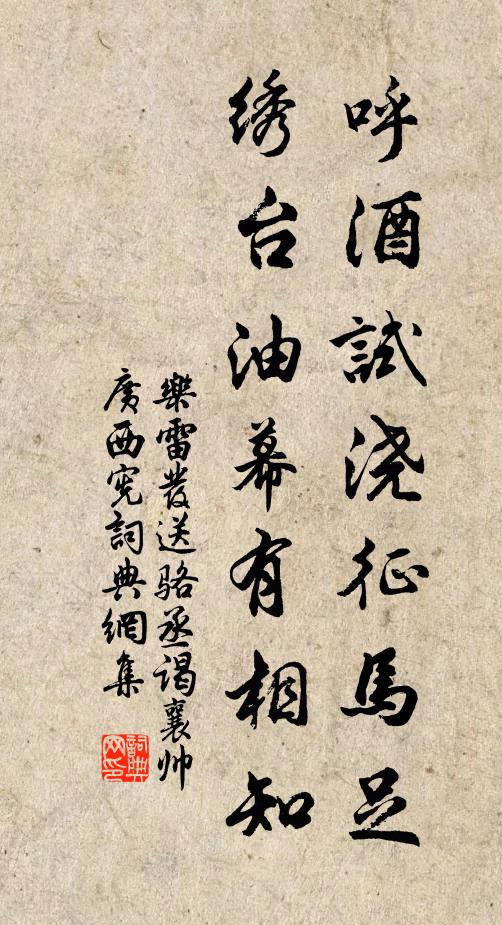 呼酒試浇征馬足
绣台油幕有相知
樂雷發送骆丞谒襄帅
廣西宪詞典網集
詞典
网印